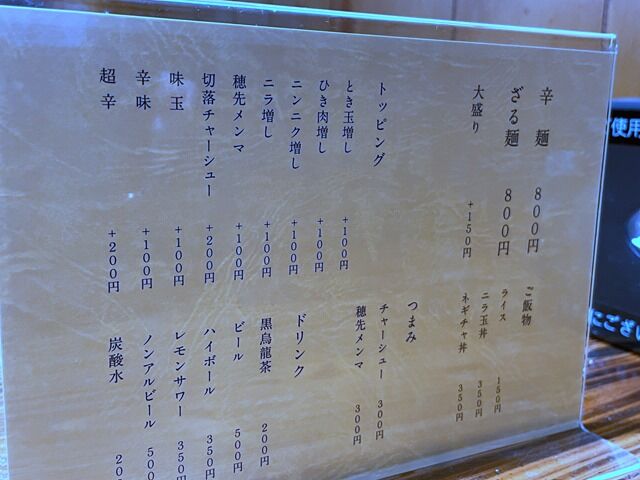 辛麺 800円
ざる麺 800円
大盛り +150円
トッピング
とき玉増し +100円
ひき肉増し +100円
ニンニク増し +100円
ニラ増し +100円
穂先メンマ +100円
切落チャーシュー +200円
味玉 +100円
辛味 +100円
超辛 +200円
ご飯物
ライス 150円
ニラ玉丼 350円
ネギチャ丼 350円
つまみ
チャーシュー 300円
穂先メンマ 300円
ドリンク
黒烏龍茶 200円
ビール 500円
ハイボール 350円
レモンサワー 350
ノンアルビール 500
炭酸水 20
使用
にござい